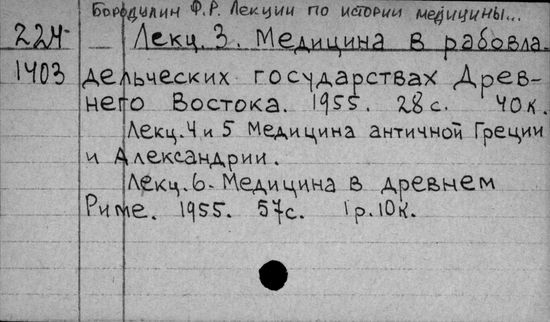 Бородулин Ф.Р. Лекции по истории медицины...
224 Лекц. 3. Медицина в рабовла-
1403 дельческих государствах Древ-
него Востока. 1955. 28 с. 40 к.
Лекц. 4 и 5 Медицина античной Греции
и Александрии.
Лекц. 6. Медицина в древнем
Риме. 1955. 57 с. 1 р. 10 к.